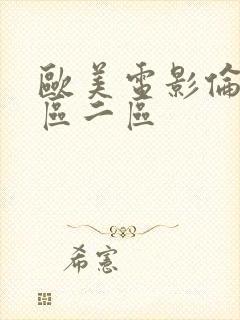 歐美電影倫
區二區
希憲